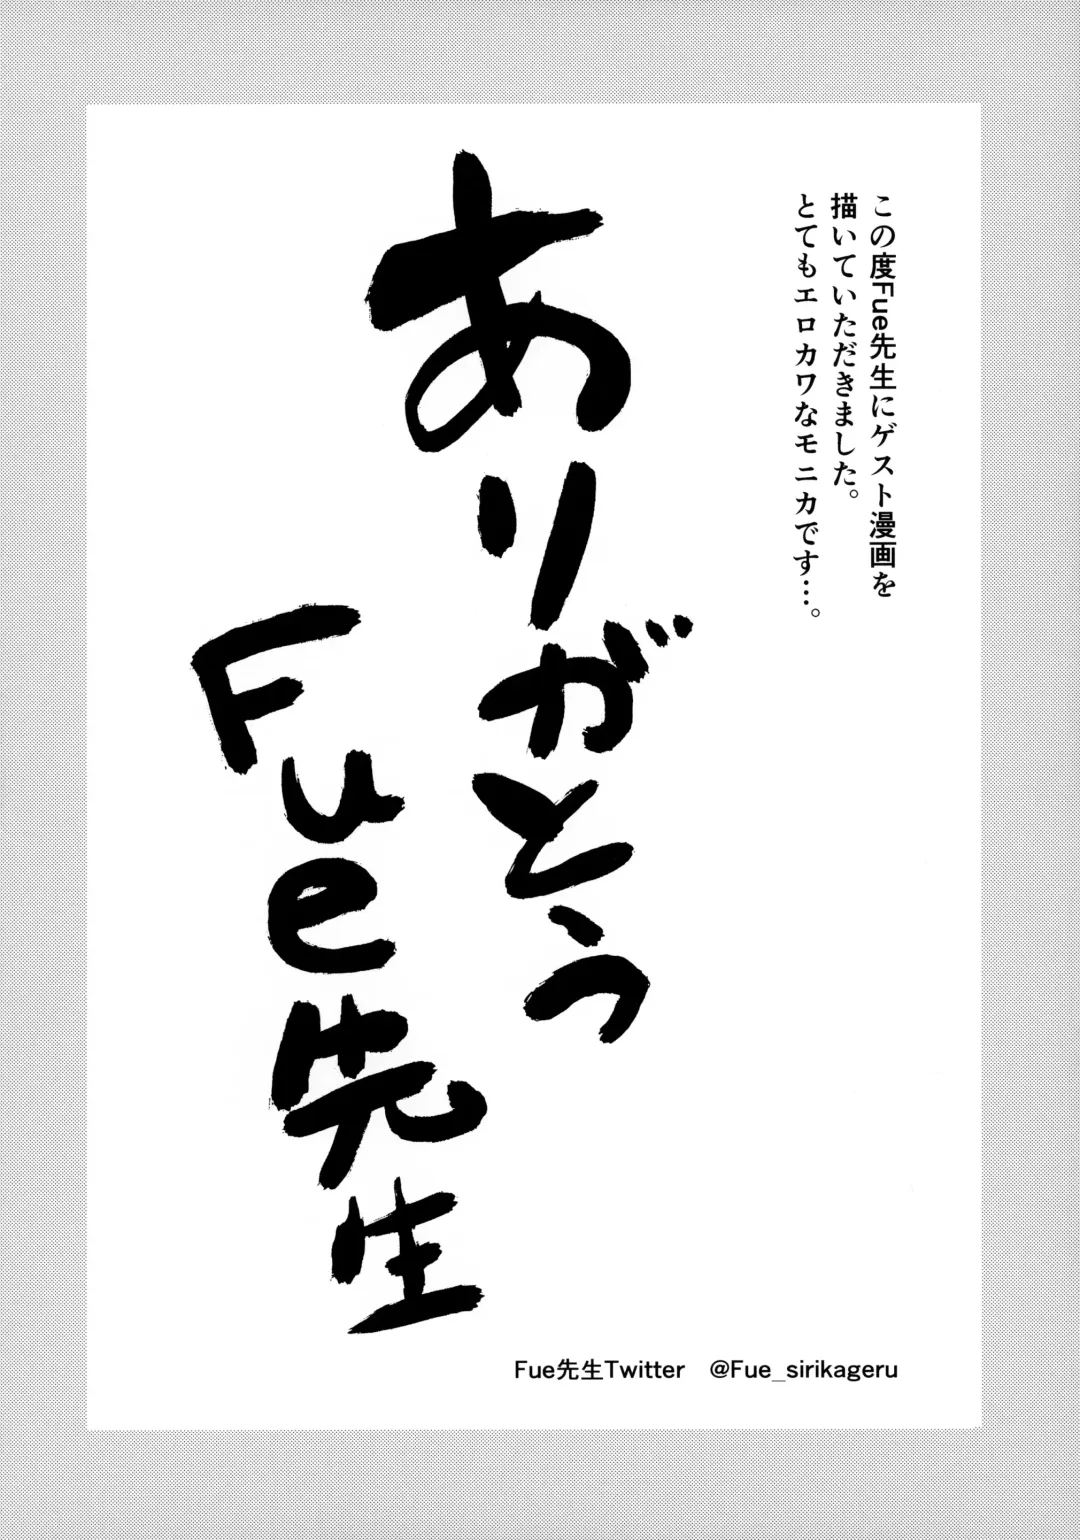 この度Fue先生にゲスト漫画を
描いていただきました。
とてもエロカワなモニカです…。
ありがとう
Fue先生
Fue先生Twitter @Fue_sirikageru